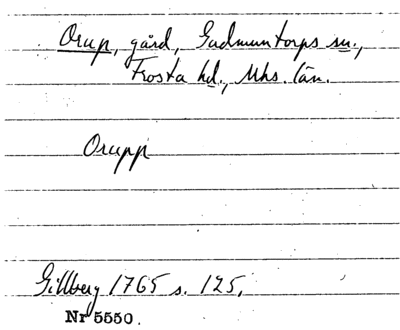 Orup, gård, Gudmuntorps sn.,
Frosta hd., Mhs. län.
Orupp
Gillberg 1765 s. 125.
Nr 5550.